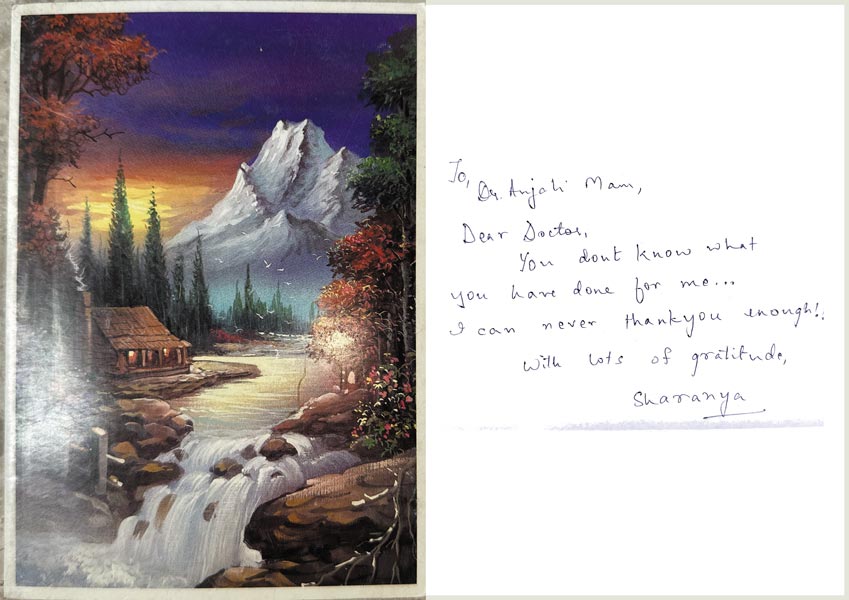 To,
Dr. Anjali Mam,
Dear Doctor,
You dont know what
you have done for me...
I can never thankyou enough!.
With lots of gratitude,
Sharanya